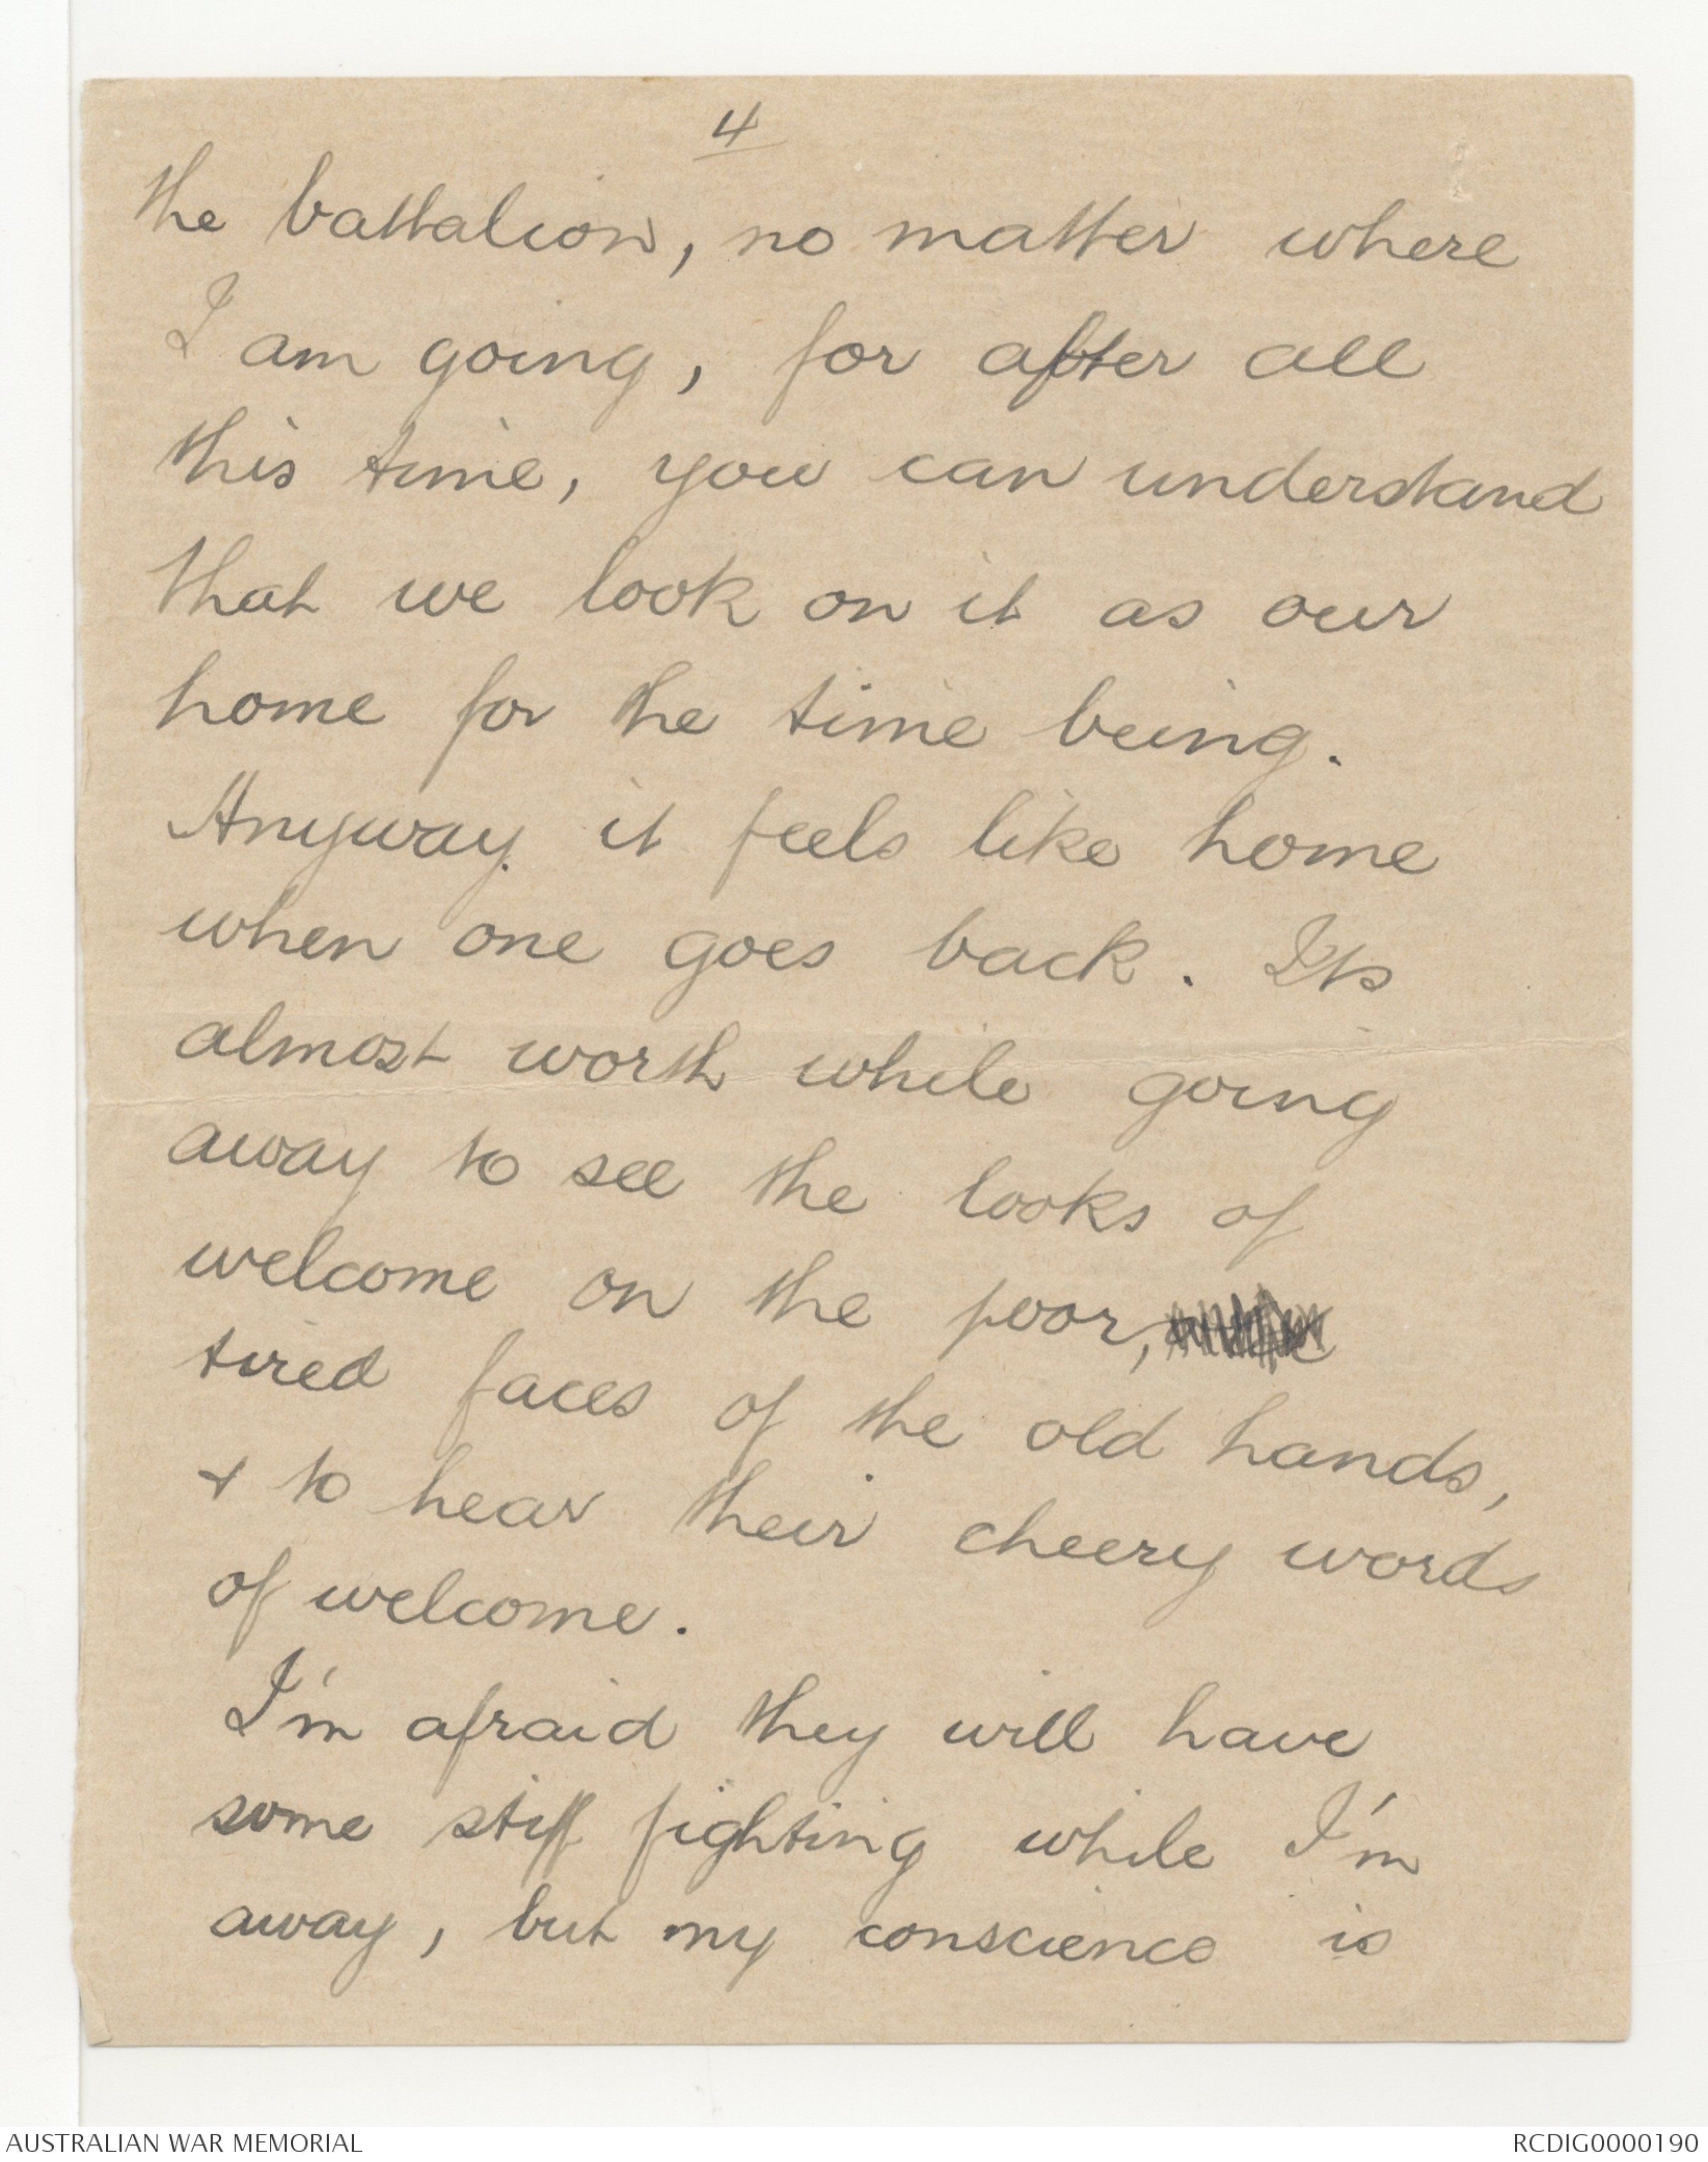 4
the battalion, no matter where
I am going, for after all
this time, you can understand
that we look on it as our
home for the time being.
Anyway it feels like home
when one goes back. Its
almost worth while going
away to see the looks of
welcome on the poor,
tired faces of the old hands,
& to hear their cheery words
of welcome.
I'm afraid they will have
some stiff fighting while I'm
away, but my conscience is
AUSTRALIAN WAR MEMORIAL
RCDIG0000190